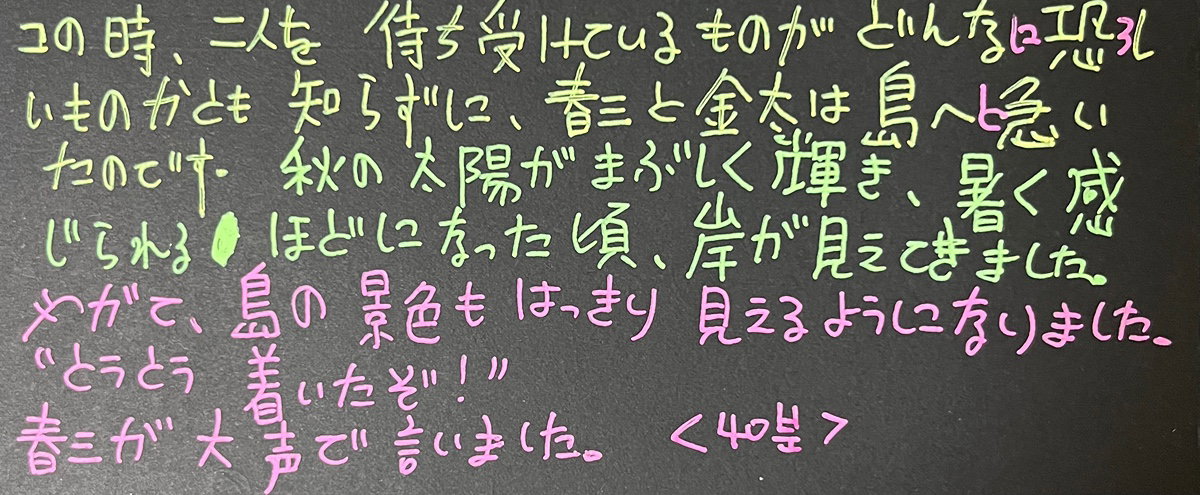 この時、二人を 待ち受けているものが どんなに恐ろし
いものかとも 知らずに、春三と金太は島へと急い
たのです。 秋の太陽がまぶしく輝き、暑く感
じられる ほどになった頃、岸が見えてきました。
やがて、島の景色も はっきり 見えるようになりました。
“とうとう 着いたぞ!”
春三が 大声で 言いました。 <40분>